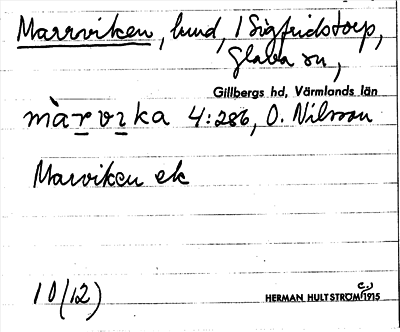 Marrviken, lund, 1 Sigfridstorp,
Glava sn,
Gillbergs hd, Värmlands län
màrvıka 4:286, O. Nilsson
Marviken ek
10(12)
HERMAN HULTSTRÖM 1915